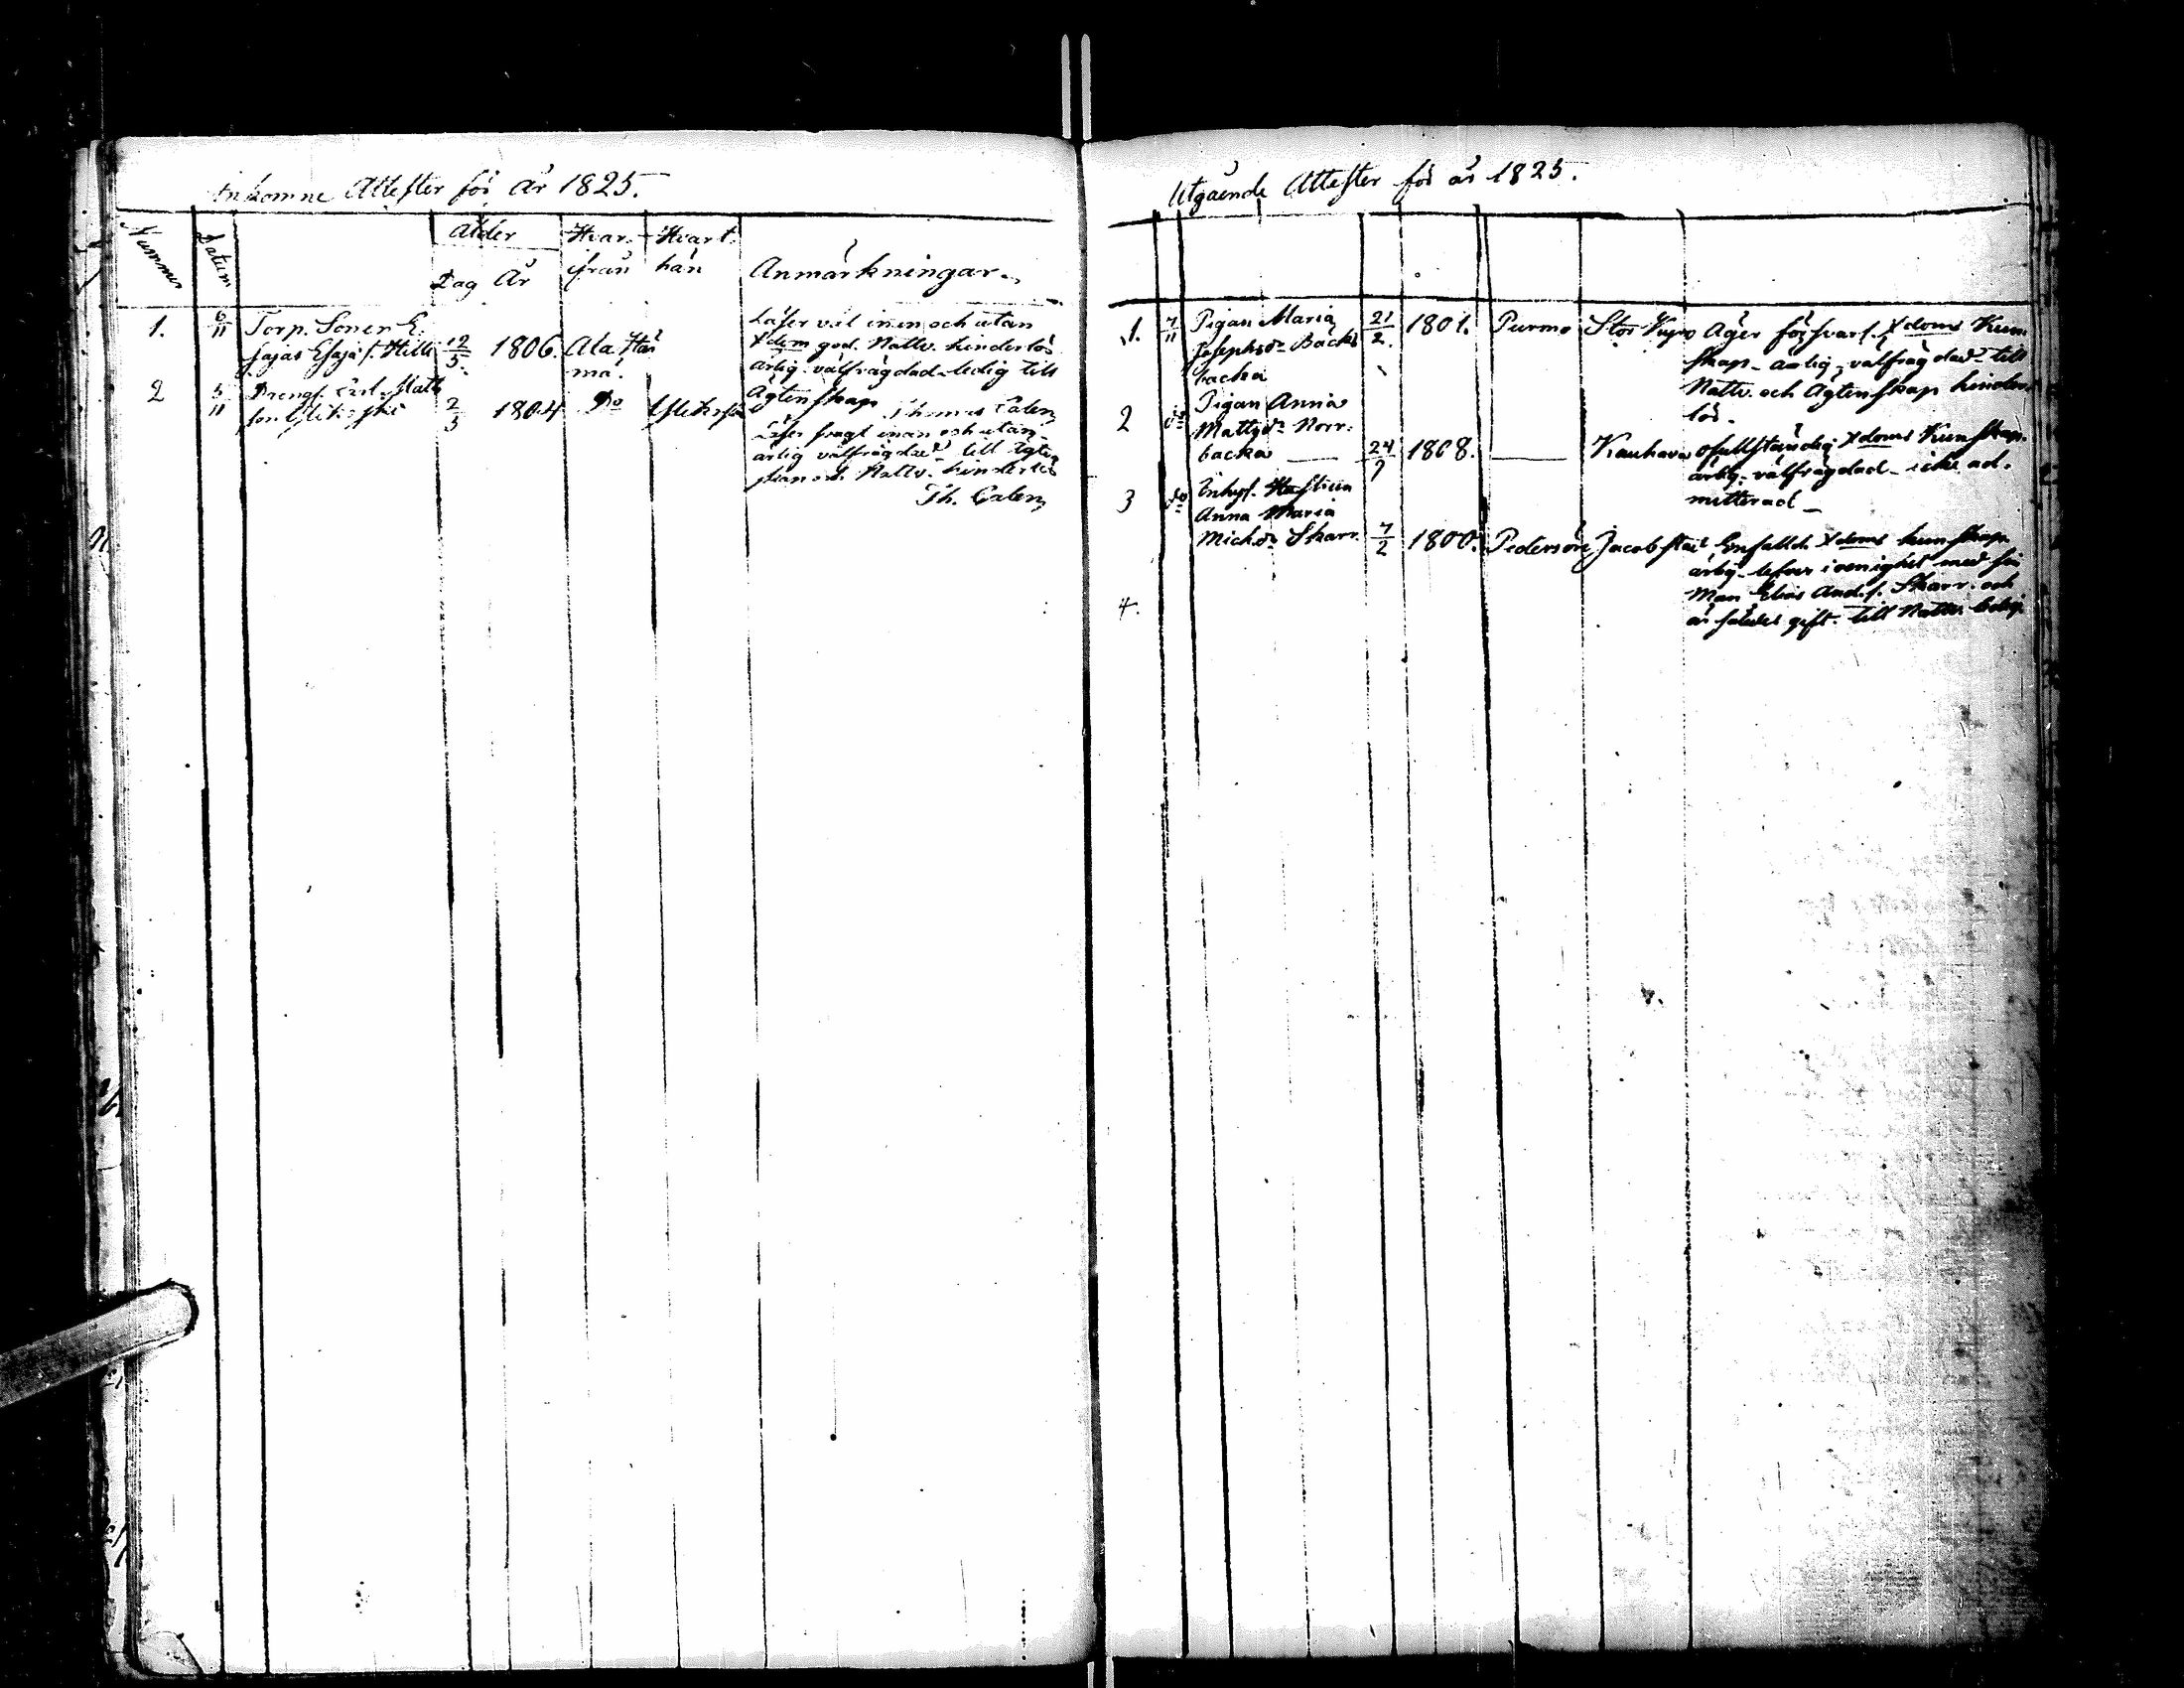 Inkomne Attester för År 1825.
Nummer Datum Ålder Hvar- Hvart
Dag År ifrån hän Anmärkningar.
1. 6/11 Torp. Sonen E-
sajas Esajæ s. Hille 12/5. 1806. Ala Här
mä.
Läser väl innan och utan
Xdom god. Nattv. hinderlös
ärlig. välfrägdad. ledig till
Ägtenskap Thomas Calen
2 5/11 Drengs. Carl Matts
son 2/3 1804 Do
Läser svagt innan och utan
ärlig välfrägdad till Ägten
skap och Nattv. hinderlös
Th. Calen
Utgående Attester för år 1825.
1. 7/11 Pigan Maria 21/2. 1801. Purmo Stor Kyro
Josephsdr Backs
backa
Äger försvarl. Xdoms Kun
skap. ärlig, välfrägdad till
Nattv. och Ägtenskap hinder
lös.
2 do Pigan Anna
Mattsdr Norr-
backa 24/9 1808. Kauhava
ofullständig Xdoms Kunskap.
ärlig. välfrägdad. icke ad-
mitterad
3 do Inhys. Hustrun
Anna Maria
Michsdr Skarr. 7/2 1800. Pedersöre Jacobstad
Enfaldt Xdoms kunskap
ärlig. lefver i oenighet med sin
Man Elias And.s. Skarr. och
är således gift. till Nattv. ledig
4.